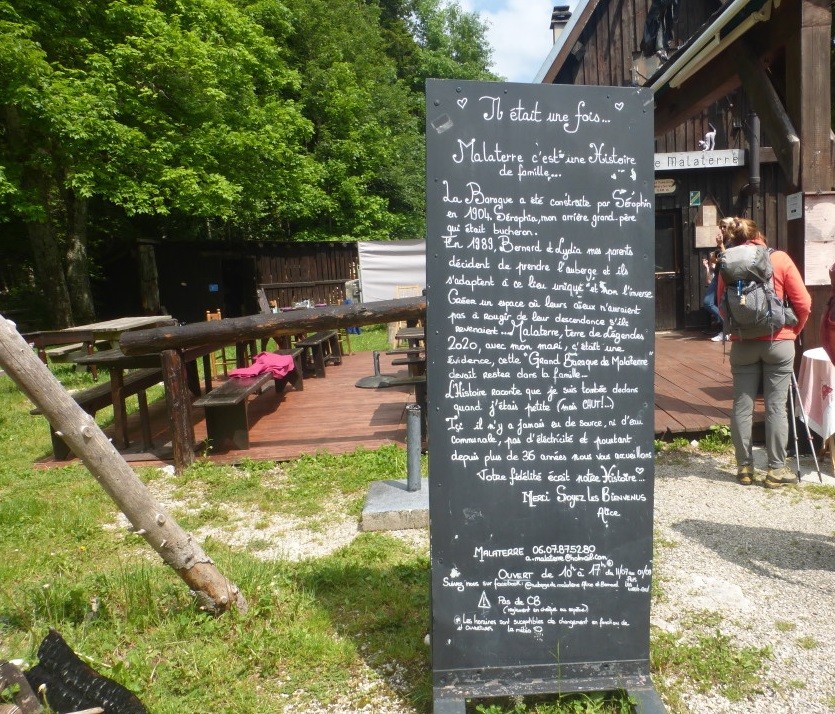 Il était une fois...
Malaterre c'est une Histoire
de famille...
La Baraque a été construite par Séraphin
en 1904. Séraphin, mon arrière grand-père
qui était bucheron.
En 1989, Bernard et Lydia mes parents
décident de prendre l'auberge et ils
s'adaptent à ce lieu unique et non l'inverse
Créer un espace où leurs aïeux n'auraient
pas à rougir de leur descendance s'ils
revenaient... Malaterre, terre de légendes
2020, avec mon mari, c'était une
évidence, cette "Grand Baraque de Malaterre"
devait rester dans la famille...
L'Histoire raconte que je suis tombée dedans
quand j'étais petite (mais CHUT!...)
Ici il n'y a jamais eu de source, ni d'eau
communale, pas d'éléctricité et pourtant
depuis plus de 36 années nous vous accueillons
Votre fidélité écrit notre Histoire...
Merci Soyez les Bienvenus
Alice
Malaterre 06.07.87.52.80
a-malaterre@hotmail.com
Ouvert de 10h à 17h
Suivez nous sur facebook:
Pas de CB
(règlement en chèque ou espèce)
Les horaires sont susceptibles de changement en fonction de
la météo
e Malaterre